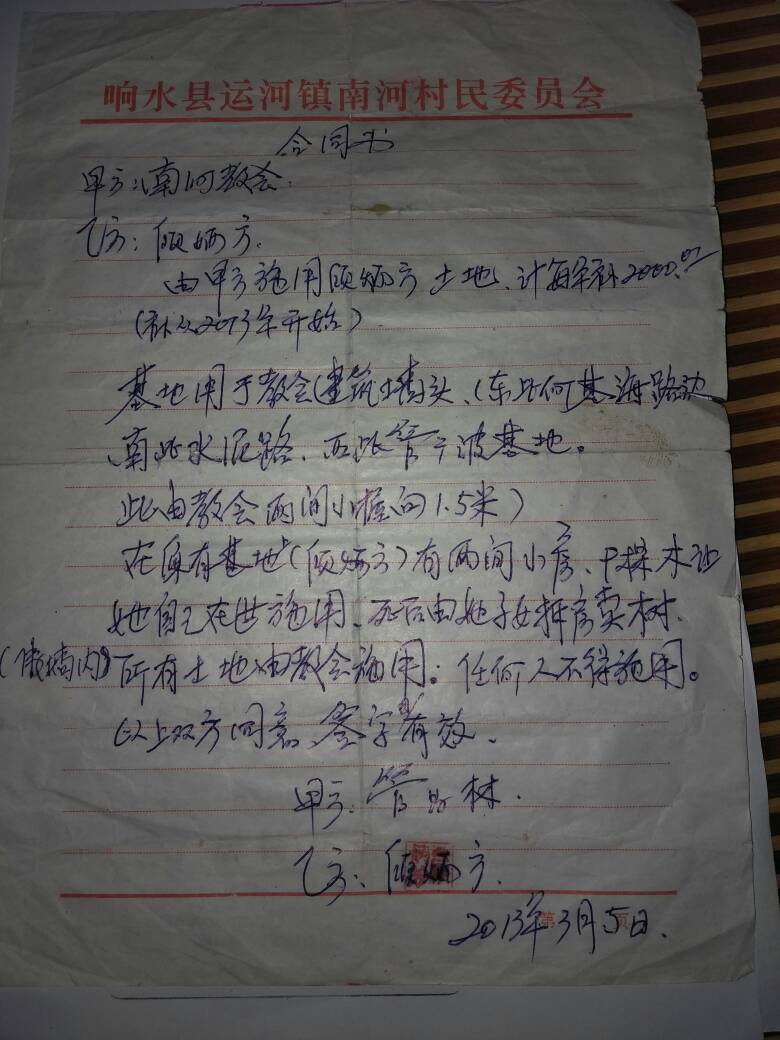 响水县运河镇南河村民委员会
合同书
甲方:南河教会.
乙方:顾炳方.
由甲方施用顾炳方土地、计每年补2000.00
(补从2013年开始)
基地用于教会建筑墙头、(东北何基海路边
南北水泥路、西北管广波基地。
北由教会两间小屋向1.5米)
在原有基地上(顾炳方)有两间小房、木让
她自己在世施用、死后由她子女拆房卖树.
(墙内)所有土地由教会施用。任何人不得施用。
以上双方同意、签字有效、
甲方:管林.
乙方:顾炳方.
第 页
2013年3月5日.